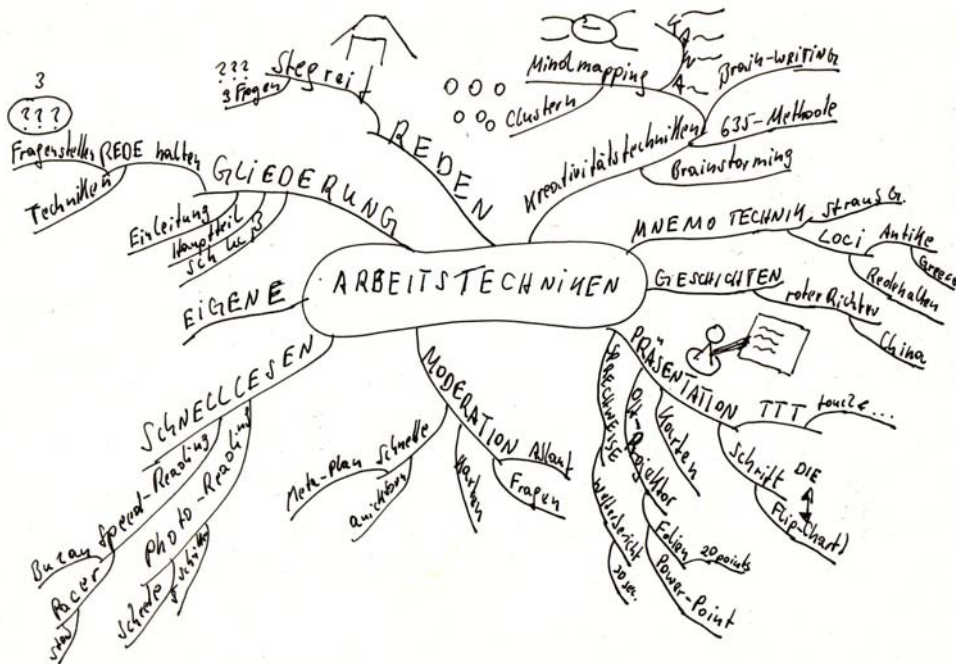 ARBEITSTECHNIKEN
REDEN
Stegreif
???
3 Fragen
GLIEDERUNG
REDE halten
3
???
Fragenstellen
Techniken
Einleitung
Hauptteil
Schluß
EIGENE
SCHNELLLESEN
Speed-Reading
Buzan
Pacer
Photo-Reading
Scheele
5 Schritte
MODERATION
Meta-plan
Schnelle
Karten
Ablauf
Fragen
PRÄSENTATION
SPRECHWEISE
Wetterbericht
30 sec.
O/H-Projektor
Folien
20 points
Power-Point
Karten
Schrift
DIE
Flip-Chart
TTT
touch...
GESCHICHTEN
roter Richter
China
MNEMO TECHNIK
LOCI
Antike
Redehalten
Kreativitätstechniken
Mindmapping
Clustern
Brain-WRITING
635-Methode
Brainstorming